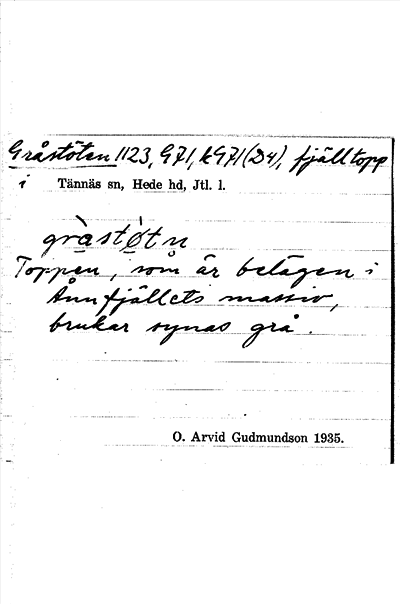 Gråstöten 1123, G71, kG71(D4), fjälltopp
i Tännäs sn, Hede hd, Jtl. l.
gràstø̀tn
Toppen, som är belägen i
Ånnfjällets massiv,
brukar synas grå.
O. Arvid Gudmundson 1935.